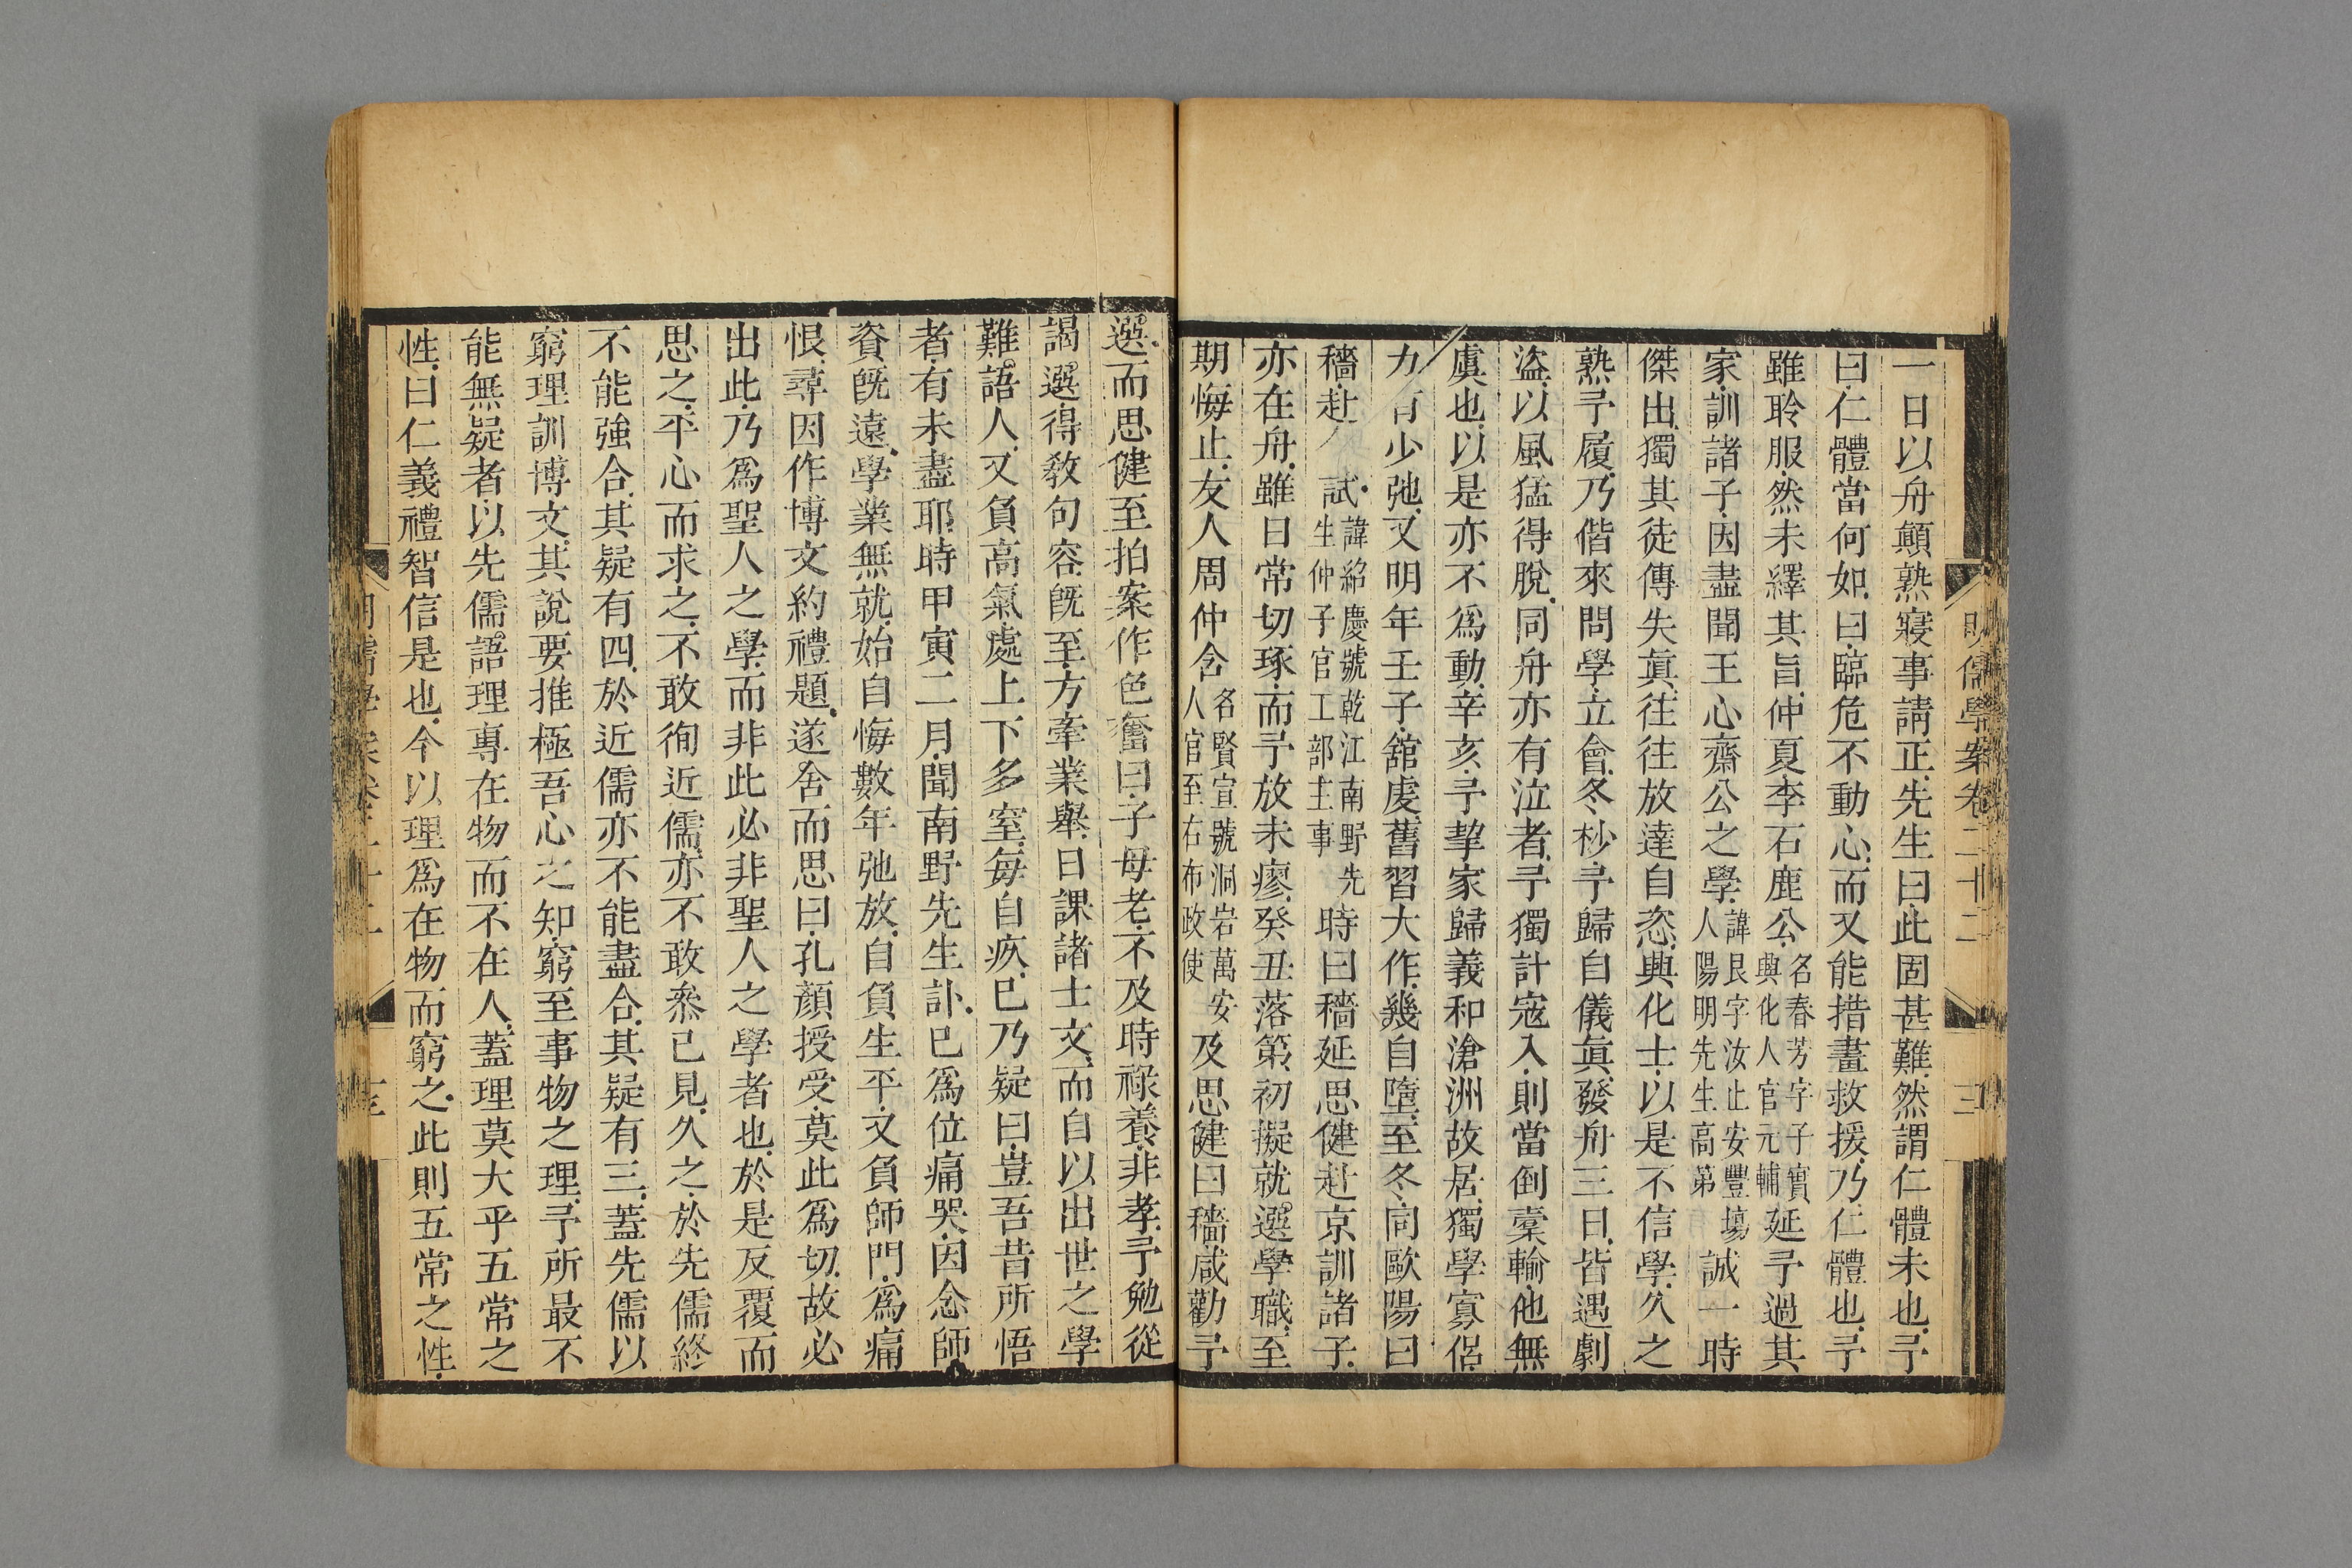 一日以舟顛熟寢事請正先生曰此固甚難然謂仁體未也予
曰仁體當何如曰臨危不動心而又能措畫救援乃仁體也予
雖聆服然未繹其旨仲夏李石鹿公名春芳字子實興化人官元輔延予過其
家訓諸子因盡聞王心齋公之學諱艮字汝止安豐塲人陽明先生高第誠一時
傑出獨其徒傳失眞往往放達自恣興化士以是不信學久之
熟予履乃偕來問學立會冬杪予歸自儀眞發舟三日皆遇劇
盜以風猛得脫同舟亦有泣者予獨計寇入則當倒槖輸他無
虞也以是亦不爲動辛亥予挈家歸義和滄洲故居獨學寡侶
力有少弛又明年壬子舘虔舊習大作幾自墮至冬同歐陽曰
穡赴試諱紹慶號乾江南野先生仲子官工部主事時曰穡延思健赴京訓諸子
亦在舟雖日常切琢而予放未瘳癸丑落第初擬就選學職至
期悔止友人周仲含名賢宣號洞岩萬安人官至右布政使及思健曰穡咸勸予
明儒學案卷二十二
三
選而思健至拍案作色奮曰子母老不及時祿養非孝予勉從
謁選得敎句容旣至方牽業舉日課諸士文而自以出世之學
難語人又負高氣處上下多窒每自疚已乃疑曰豈吾昔所悟
者有未盡耶時甲寅二月聞南野先生訃已爲位痛哭因念師
資旣遠學業無就始自悔數年弛放自負生平又負師門爲痛
恨尋因作博文約禮題遂舍而思曰孔顏授受莫此爲切故必
出此乃爲聖人之學而非此必非聖人之學者也於是反覆而
思之平心而求之不敢徇近儒亦不敢叅己見久之於先儒終
不能強合其疑有四於近儒亦不能盡合其疑有三蓋先儒以
窮理訓博文其說要推極吾心之知窮至事物之理予所最不
能無疑者以先儒語理專在物而不在人蓋理莫大乎五常之
性曰仁義禮智信是也今以理爲在物而窮之此則五常之性